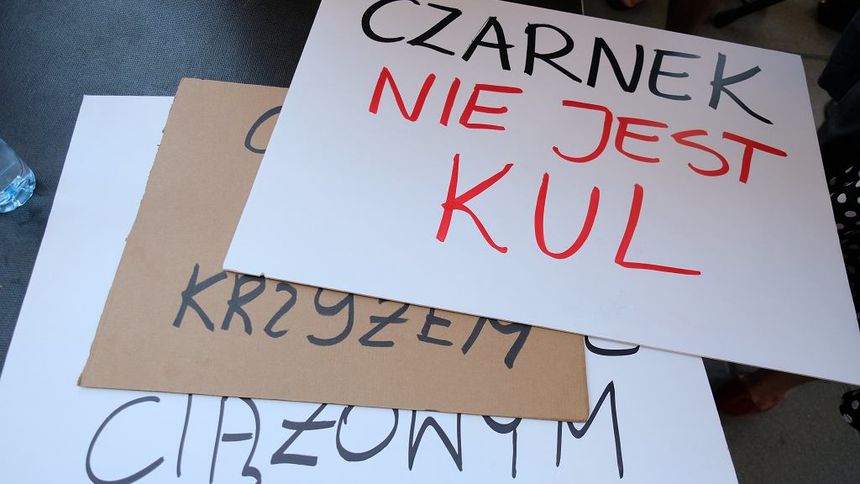 CZARNEK
NIE JEST
KUL
KRZYŻEM
CIĄŻOWYM